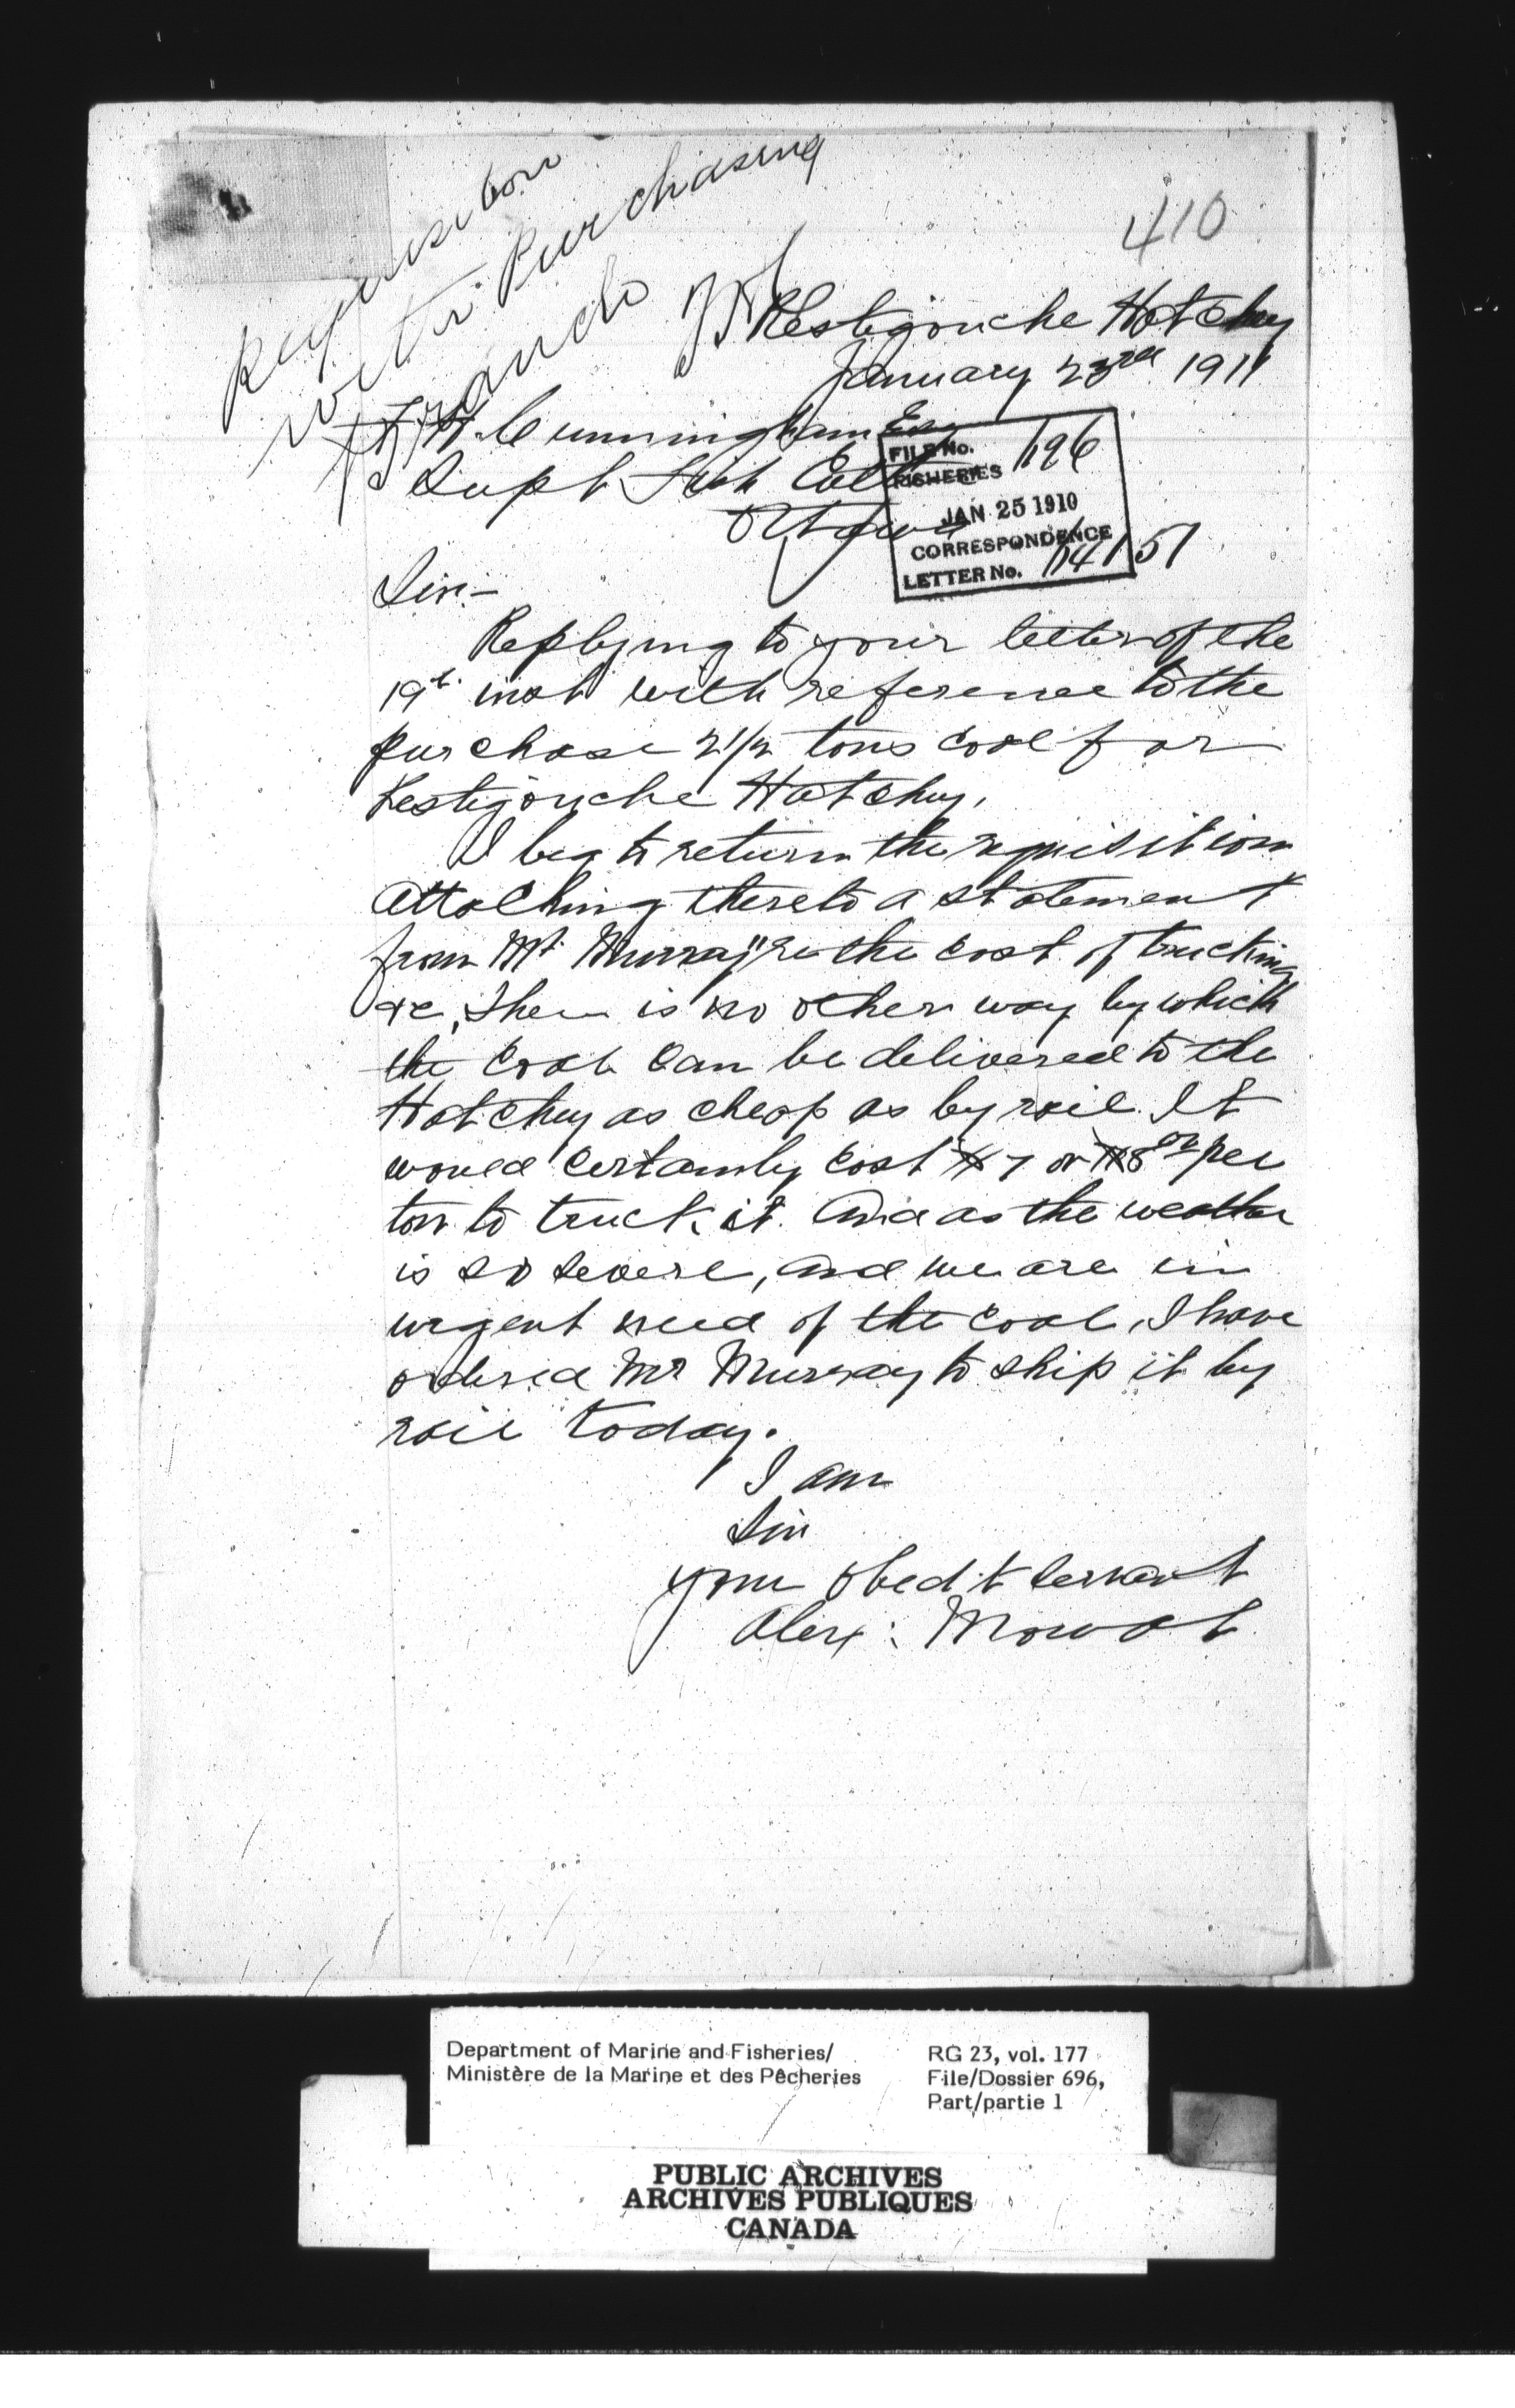 Requisition
with Purchasing
410
Restigouche Hatchy
January 23rd 1911
F. H. Cunningham Esq
Supt Fish Cult
Ottawa
FILE No. 696
FISHERIES
JAN 25 1910
CORRESPONDENCE
LETTER No. 14151
Sir:-
Replying to your letter of the
19t. inst with reference to the
purchase 2 1/2 tons coal for
Restigouche Hatchy,
I beg to return the requisition
attaching thereto a statement
from Mr. Murray "re the cost of trucking
&c, There is no other way by which
the coal can be delivered to the
Hatchy as cheap as by rail. It
would certainly cost $7 or $8 per
ton to truck it. And as the weather
is so severe, and we are in
urgent need of the coal, I have
ordered Mr Murray to ship it by
rail today.
I am
Sir
your obed't servant
Alex: Mowat
Department of Marine and Fisheries/
Ministère de la Marine et des Pêcheries
RG 23, vol. 177
File/Dossier 696,
Part/partie 1
PUBLIC ARCHIVES
ARCHIVES PUBLIQUES
CANADA